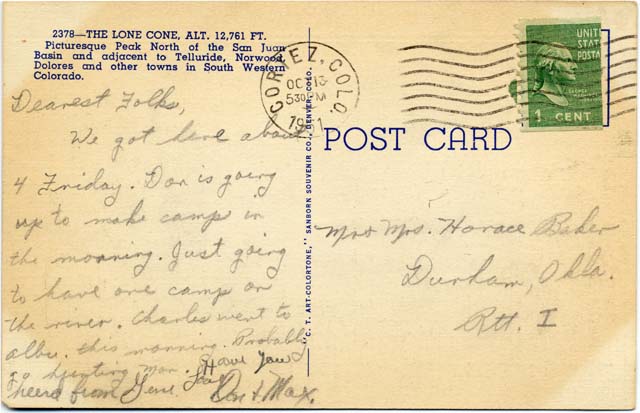 2378—THE LONE CONE, ALT. 12,761 FT.
Picturesque Peak North of the San Juan
Basin and adjacent to Telluride, Norwood,
Dolores and other towns in South Western
Colorado.
CORTEZ, COLO.
OC 13
530 PM
UNIT
STAT
POSTA
1 CENT
POST CARD
"C. T. ART-COLORTONE," SANBORN SOUVENIR CO., DENVER, COLO.
Dearest Folks,
We got here about
4 Friday. Don is going
up to make camp in
the morning. Just going
to have one camp on
the river. Charles went to
albu. this morning. Probably
go hunting Mon. Have you
heard from Gene.
Don & Max.
Mr & Mrs. Horace Baker
Durham, Okla.
Rtt. I